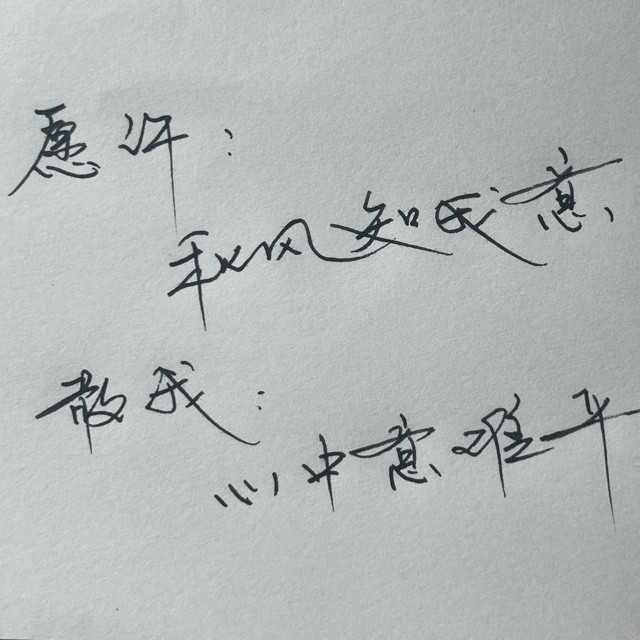 愿许：
秋风知我意
散我：
心中意难平